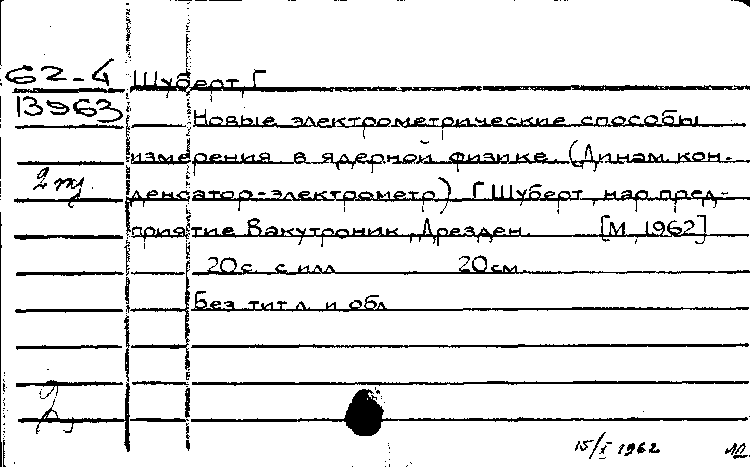 62-4 Шуберт, Г.
13963
Новые электрометрические способы
измерения в ядерной физике. (Динам. кон-
2 экз. денсатор-электрометр). Г. Шуберт, нар. пред-
приятие Вакутроник, Дрезден. [М., 1962]
20 с. с илл. 20 см.
Без тит. л. и обл.
15/X 1962